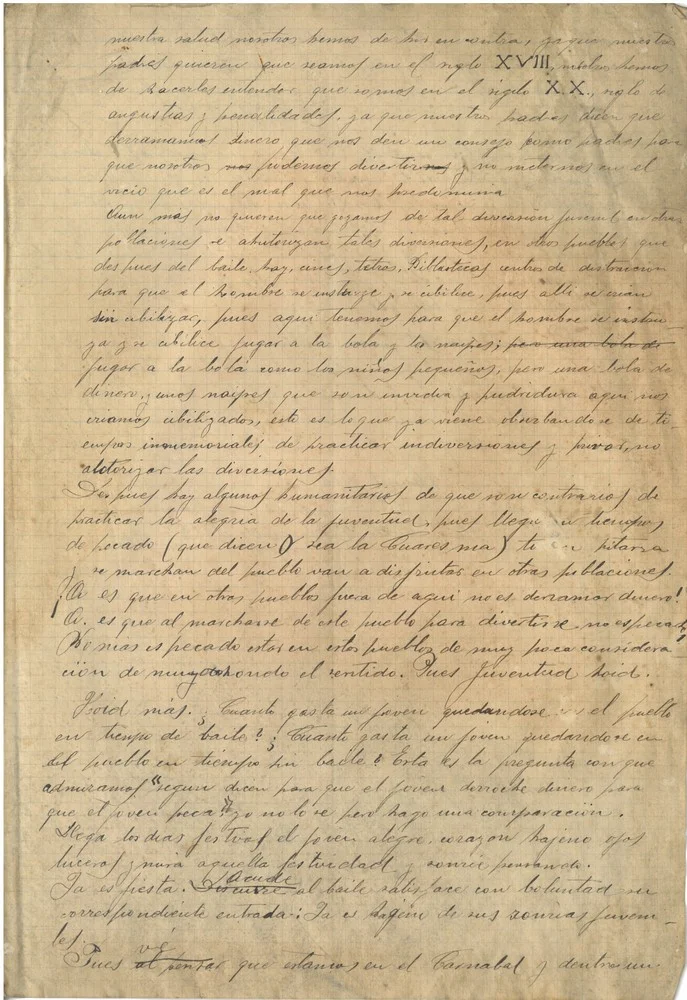 nuestra salud nosotros hemos de hir en contra, ya que nuestros
padres quieren que seamos en el siglo XVIII, nosotros hemos
de hacerlos entender que somos en el siglo X.X., siglo de
angustias y penalidades. ya que nuestros padres dicen que
derramamos dinero que nos den un consejo como padres para
que nosotros nos podemos divertirnos y no meternos en el
vicio que es el mal que nos predomina
Aun mas no quieren que gozamos de tal diversión juvenil, en otras
poblaciones se ahutorizan tales diversiones, en otros pueblos que
despues del baile, hay, cines, tetros, Bibliotecas centros de distracion
para que el hombre se instruye y se cibilice, pues alli se crian
sin cibilizar, pues aqui tenemos para que el hombre se instru-
ya y se cibilice jugar a la bola y los naipes; pero una bola de
jugar a la bola como los niños pequeños, pero una bola de
dinero, y unos naipes que son inmundia y pudridura aqui nos
criamos cibilizados, esto es lo que ya viene obserbandose de ti-
empos inmemoriales de practicar indiversiones y privar, no
autorizar las diversiones.
Despues hay algunos humanitarios de que son contrarios de
practicar la alegria de la juventud, pues llega un tiempos
de pecado (que dicen O sea la Cuaresma) pitarra
se marchan del pueblo van a disfrutar en otras poblaciones.
¡O es que en otros pueblos fuera de aqui no es derramar dinero!
O. es que al marcharse de este pueblo para divertirse no es pecado!
No mas es pecado estar en estos pueblos de muy poca considera
ción de muy hondo el sentido. Pues Juventud hoid.
Hoid más. ¿Cuanto gasta un joven quedandose el pueblo
en tiempo de baile? ¿Cuanto gasta un joven quedandose en
del pueblo en tiempo sin baile? Esta es la pregunta con que
admiramos "segun dicen para que el joven derroche dinero para
que el joven peca"? yo no lo se pero hago una comparación.
Llega los dias festivos el joven alegre, corazon hajeno ojos
luceros y mira aquella festividad y sonrie pensando.
Ya es fiesta. acude
Discurre al baile satisface con boluntad su
correspondiente entrada; Ya es hajen de sus sonrias juveni-
les.
vé
Pues al pensar que estamos en el Carnabal y dentro un-